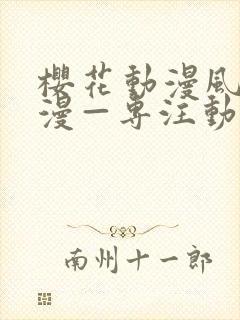 櫻花動漫風
漫—專注動
南州十一郎